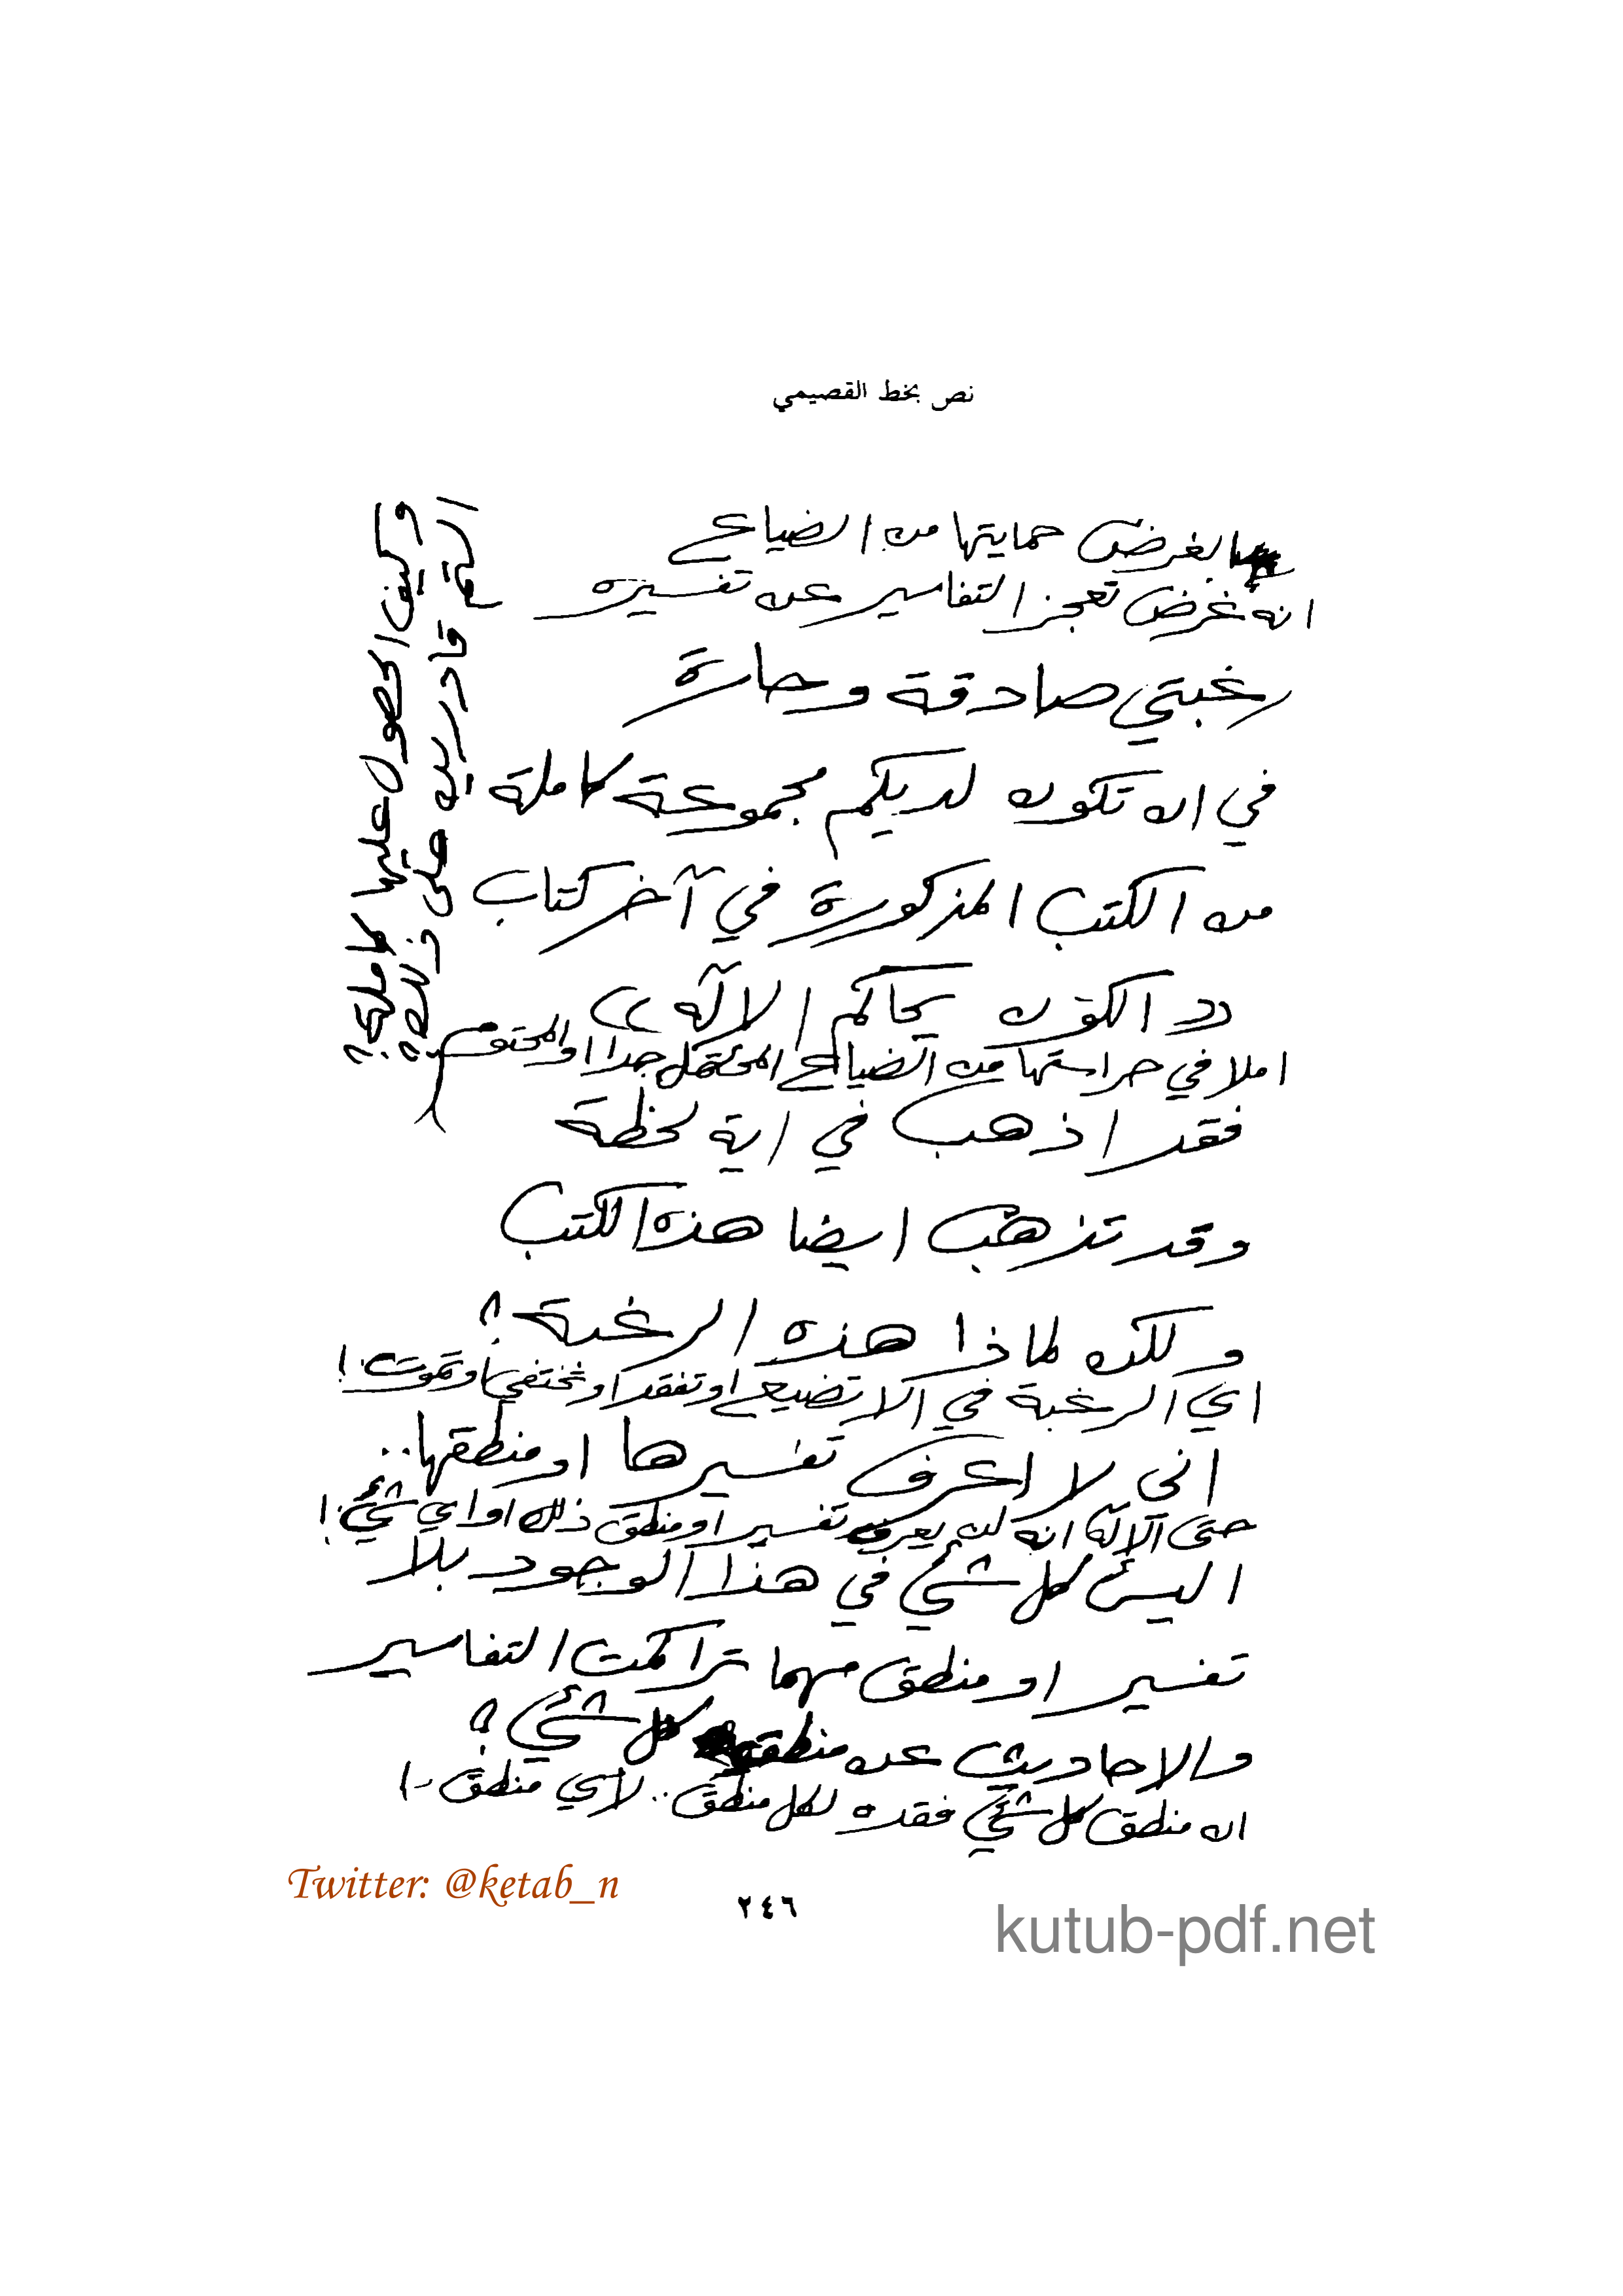 نص بخط القصيمي
بغرض حمايتها من الضياع
انه غرض تعجز التفاسير عن تفسيره
رغبتي صادقة وحارة
في ان تكون لديكم مجموعة كاملة
من الكتب المذكورة في آخر كتاب
(( الكون يحاكم الإلآه ))
املا في حراستها من الضياع المحتمل جدا او المحتوم
فقد اذهب في اية لحظة
وقد تذهب ايضا هذه الكتب
ولكن لماذا هذه الرغبة؟
اي الرغبة في الا تضيع او تفقد او تختفي او تموت!
انى لا اعرف تفسيرها او منطقها..
حتى الإلآه انه لن يعرف تفسير او منطق ذلك او اي شيء!
اليس كل شيء في هذا الوجود بلا
تفسير او منطق مهما تراكمت التفاسير
والاحاديث عن منطق كل شيء؟
ان منطق كل شيء فقده لكل منطق.. لأي منطق..!
وكيف الحصول عليها كاملة؟
قادرين على ذلك؟
Twitter: @ketab_n
٢٤٦
kutub-pdf.net